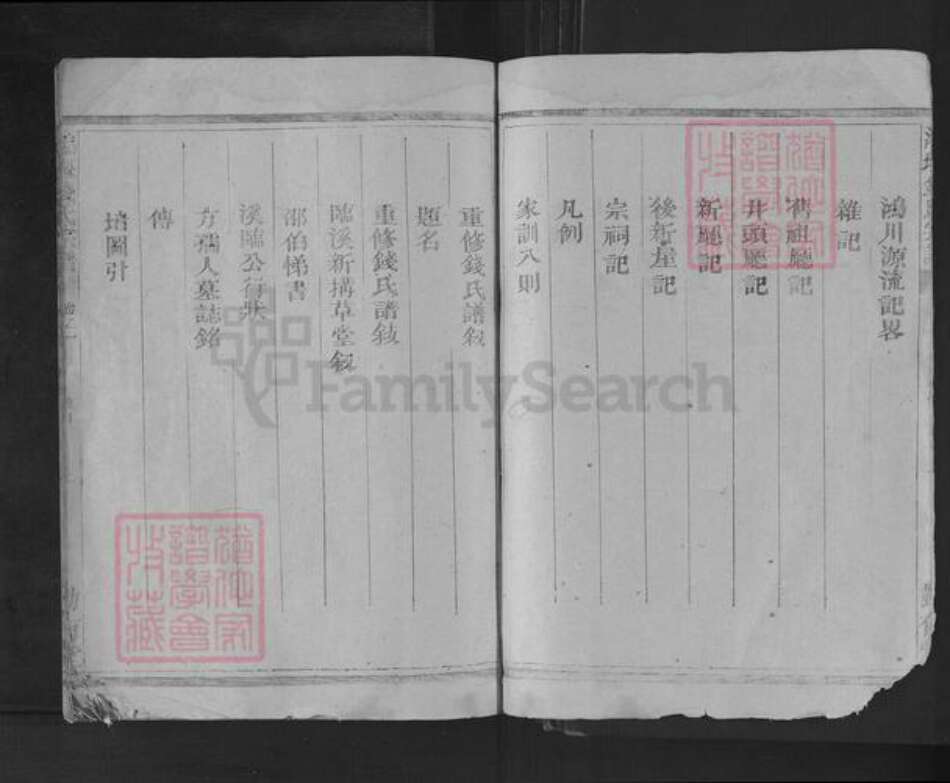 鴻川源流記畧
雜記
舊祖廳記
井頭廳記
新廳記
後新屋記
宗祠記
凡例
家訓八則
重修錢氏譜叙
題名
重修錢氏譜敍
臨溪新搆草堂叙
邵伯悌書
溪臨公行狀
方孺人墓誌銘
傳
墳圖引
猶他家譜學會收藏
猶他家譜學會收藏
FamilySearch